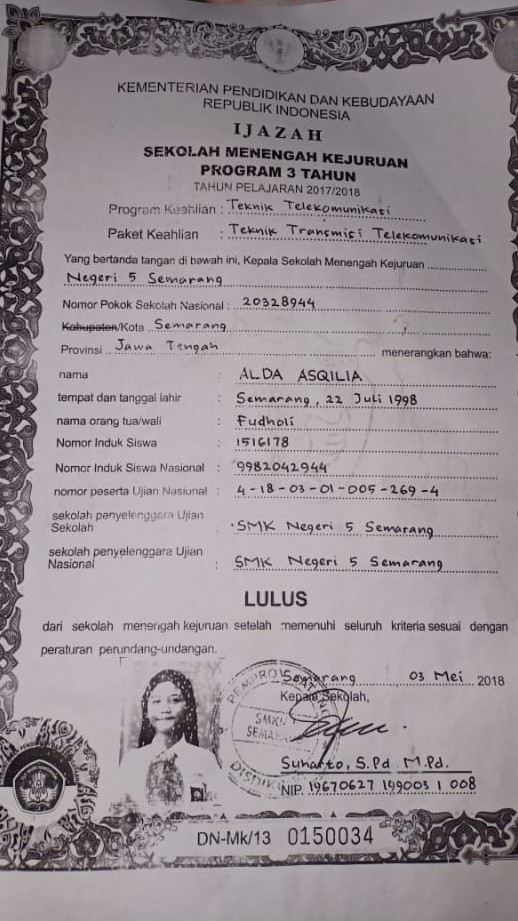 KEMENTERIAN PENDIDIKAN DAN KEBUDAYAAN
REPUBLIK INDONESIA
IJAZAH
SEKOLAH MENENGAH KEJURUAN
PROGRAM 3 TAHUN
TAHUN PELAJARAN 2017/2018
Program Keahlian : Teknik Telekomunikasi
Paket Keahlian : Teknik Transmisi Telekomunikasi
Yang bertanda tangan di bawah ini, Kepala Sekolah Menengah Kejuruan
Negeri 5 Semarang
Nomor Pokok Sekolah Nasional : 20328944
Kabupaten/Kota Semarang
Provinsi Jawa Tengah menerangkan bahwa:
nama : ALDA ASQILIA
tempat dan tanggal lahir : Semarang, 22 Juli 1998
nama orang tua/wali : Fudholi
Nomor Induk Siswa : 1516178
Nomor Induk Siswa Nasional : 9982042944
nomor peserta Ujian Nasional : 4-18-03-01-005-269-4
sekolah penyelenggara Ujian
Sekolah : SMK Negeri 5 Semarang
sekolah penyelenggara Ujian
Nasional : SMK Negeri 5 Semarang
LULUS
dari sekolah menengah kejuruan setelah memenuhi seluruh kriteria sesuai dengan
peraturan perundang-undangan.
Semarang 03 Mei 2018
Kepala Sekolah,
Suharto, S.Pd M.Pd.
NIP. 19670627 199003 1 008
DN-Mk/13 0150034